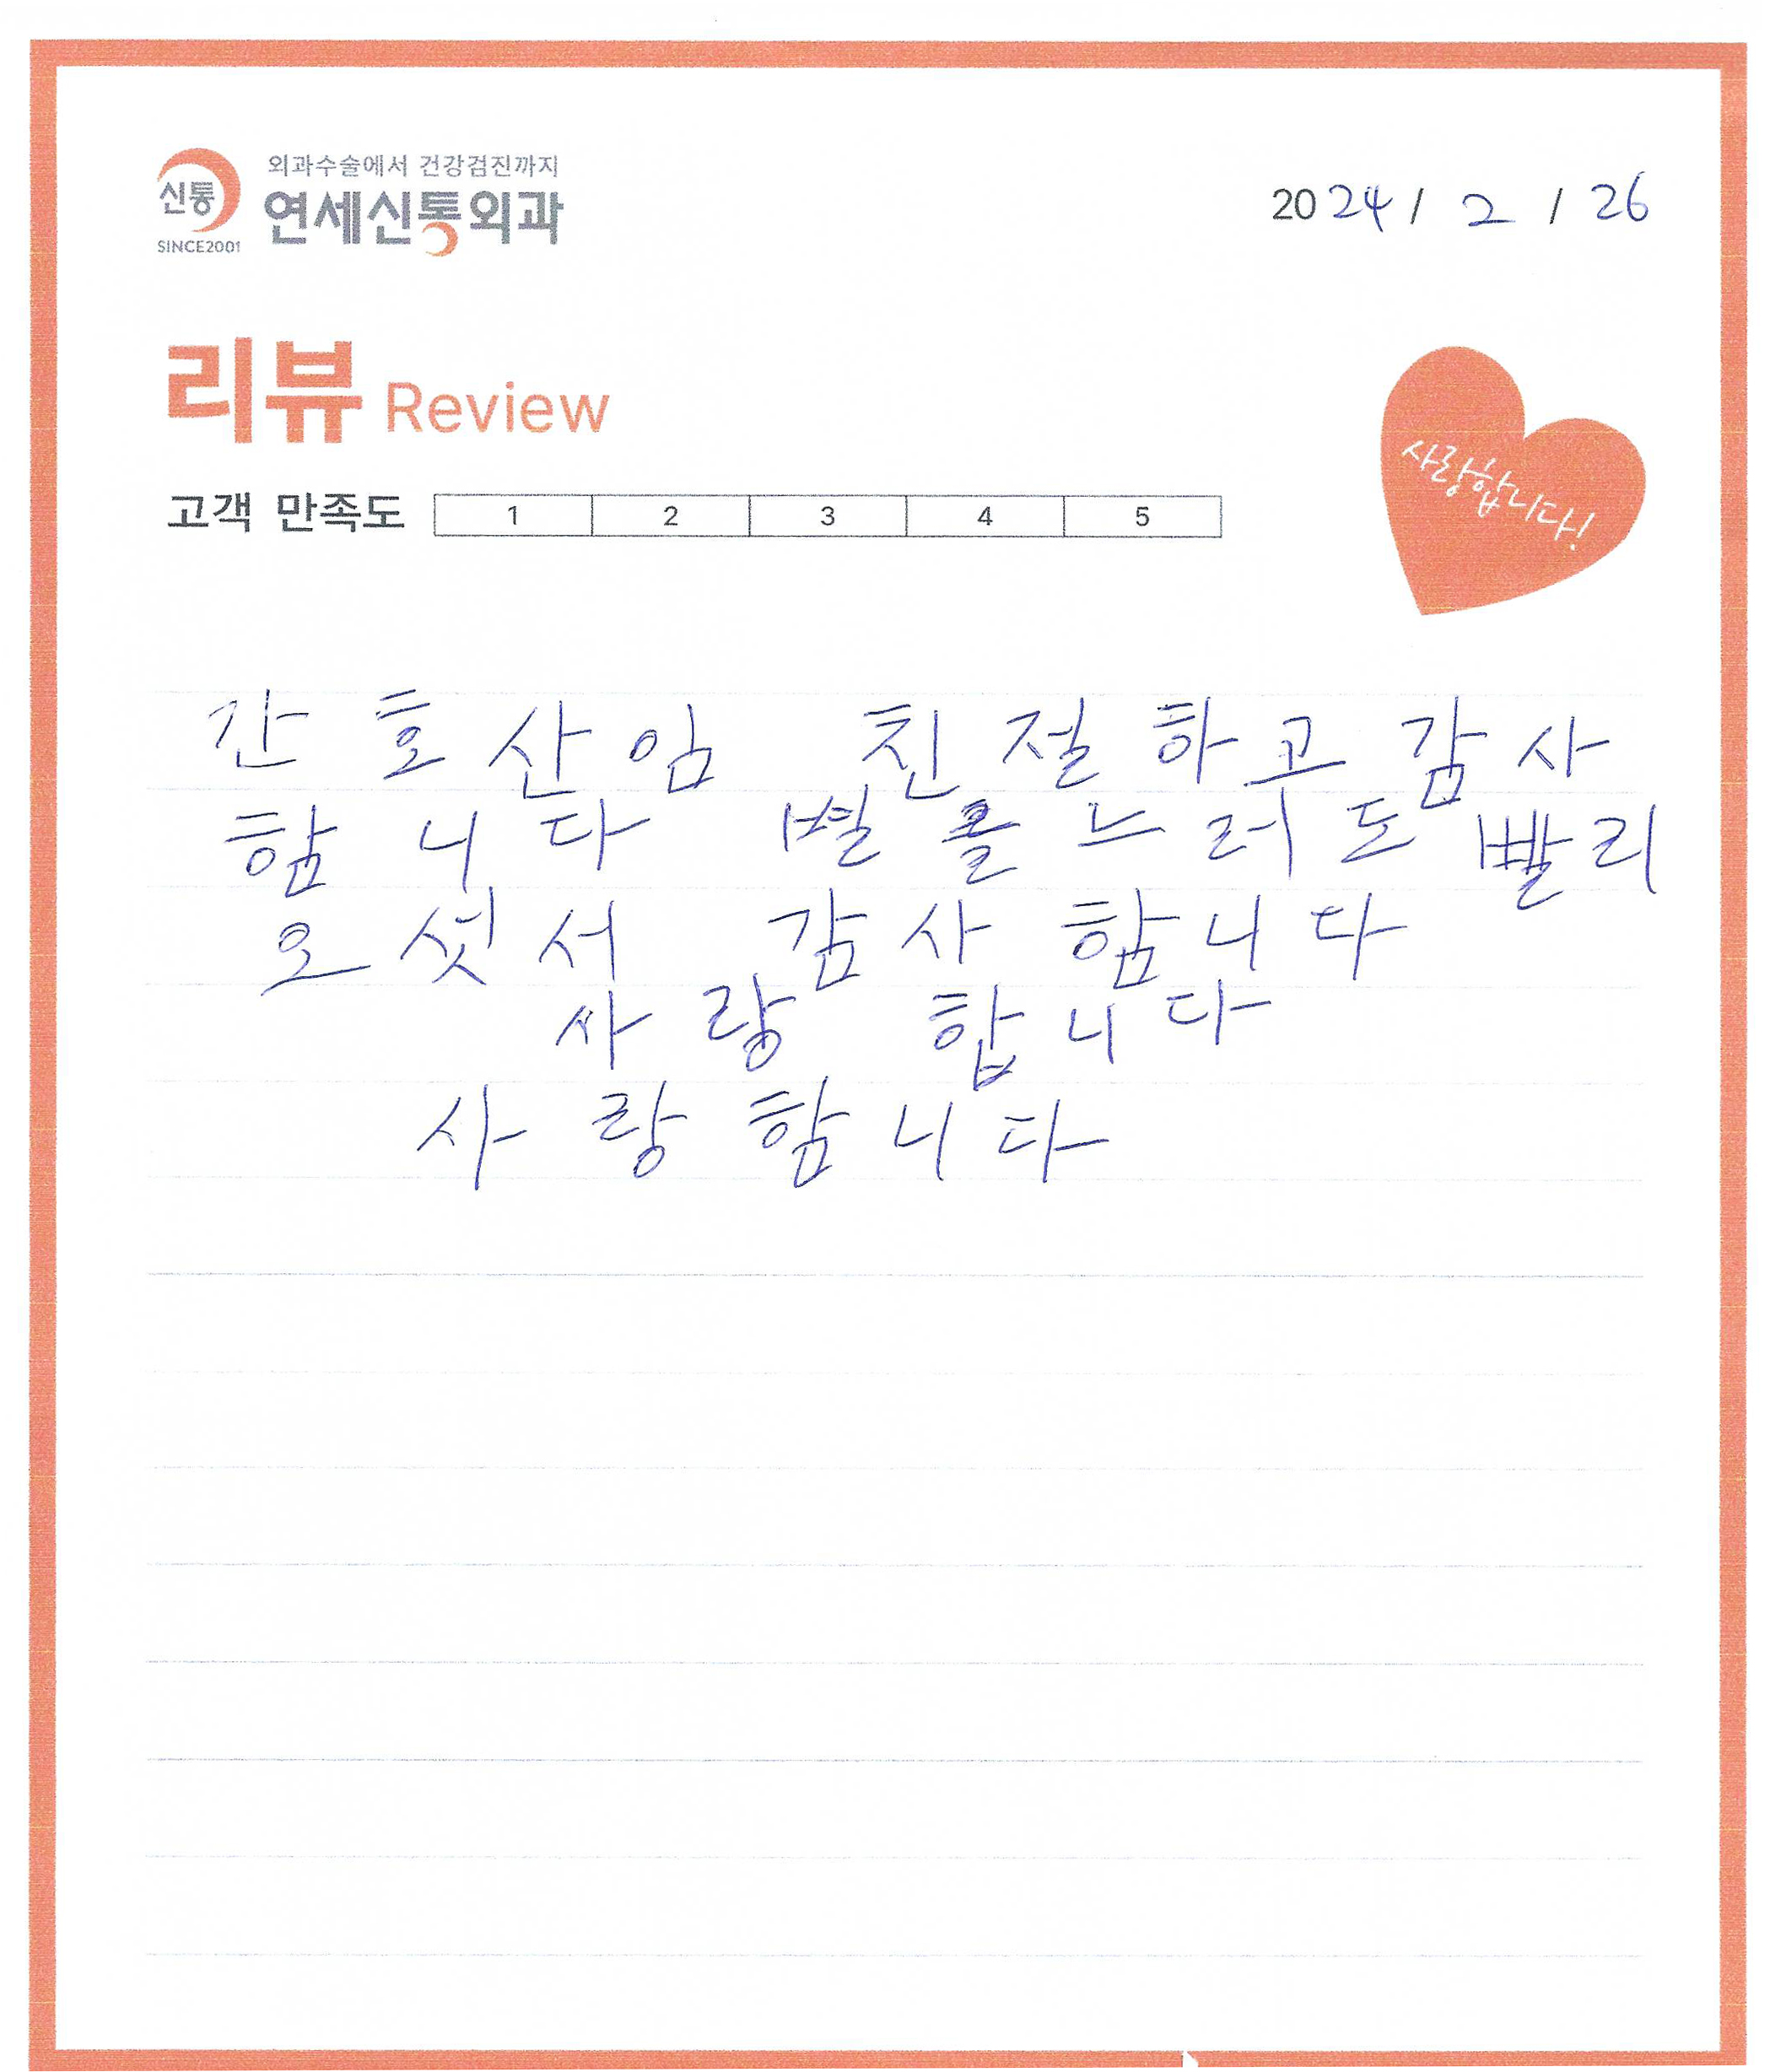 외과수술에서 건강검진까지
신통
연세신통외과
SINCE2001
2024 / 2 / 26
리뷰 Review
사랑합니다!
고객 만족도 1 2 3 4 5
간호산임 친절하고 감사
함니다 벨을 느러도 빨리
오셧서 감사 함니다
사랑 합니다
사랑함니다